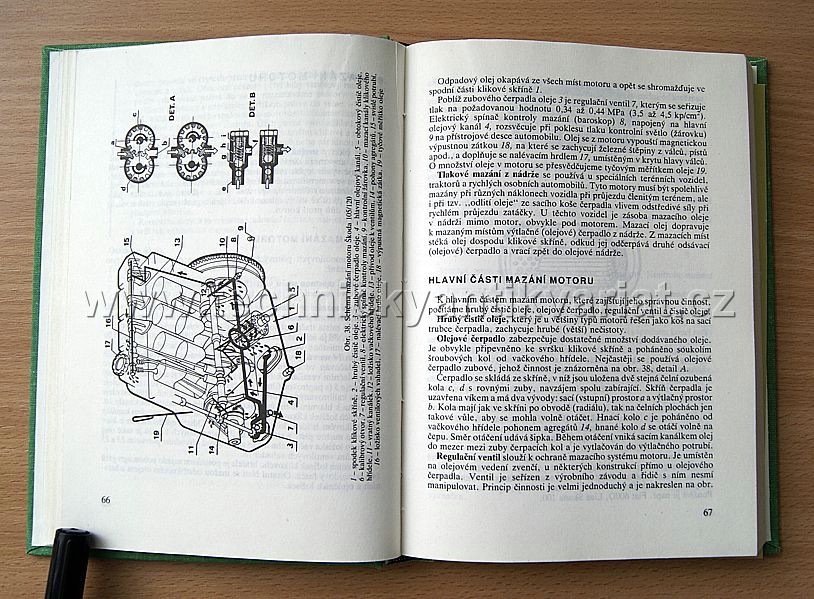 DET. A
DET. B
Obr. 38. Schéma mazání motoru Škoda 105/120
1 – spodek klikové skříně, 2 – hrubý čistič oleje, 3 – zubové čerpadlo oleje, 4 – hlavní olejový kanál, 5 – obtokový čistič oleje,
6 – kalibrový otvor, 7 – regulační ventil, 8 – elektrický spínač kontroly mazání, 9 – kontrolní žárovka, 10 – mazací kanály klikového
hřídele, 11 – vratný kanálek, 12 – ložisko vačkového hřídele, 13 – přívod oleje k ventilům, 14 – pohony agregátů, 15 – svislé potrubí,
16 – ložisko ventilových vahadel, 17 – nalévací hrdlo oleje, 18 – výpustná magnetická zátka, 19 – tyčové měřítko oleje
66
Odpadový olej okapává ze všech míst motoru a opět se shromažďuje ve
spodní části klikové skříně 1.
Poblíž zubového čerpadla oleje 3 je regulační ventil 7, kterým se seřizuje
tlak na požadovanou hodnotu 0,34 až 0,44 MPa (3,5 až 4,5 kp/cm²).
Elektrický spínač kontroly mazání (baroskop) 8, napojený na hlavní
olejový kanál 4, rozsvěcuje při poklesu tlaku kontrolní světlo (žárovku)
9 na přístrojové desce automobilu. Olej se z motoru vypouští magnetickou
výpustnou zátkou 18, na které se zachycují železné štěpiny z válců, pístů
apod., a doplňuje se nalévacím hrdlem 17, umístěným v krytu hlavy válců.
O množství oleje v motoru se přesvědčujeme tyčovým měřítkem oleje 19.
Tlakové mazání z nádrže se používá u speciálních terénních vozidel,
traktorů a rychlých osobních automobilů. Tyto motory musí být spolehlivě
mazány při různých náklonech vozidla při průjezdu členitým terénem, ale
i při tzv. „odlití oleje“ ze sacího koše čerpadla vlivem odstředivé síly při
rychlém průjezdu zatáčky. U těchto vozidel je zásoba mazacího oleje
v nádrži mimo motor, obvykle pod motorem. Mazací olej dopravuje
k mazaným místům výtlačné (olejové) čerpadlo z nádrže. Z mazacích míst
stéká olej dospodu klikové skříně, odkud jej odčerpává druhé odsávací
(olejové) čerpadlo a vrací zpět do olejové nádrže.
HLAVNÍ ČÁSTI MAZÁNÍ MOTORU
K hlavním částem mazání motoru, které zajišťují jeho správnou činnost,
počítáme hrubý čistič oleje, olejové čerpadlo, regulační ventil a čistič oleje.
Hrubý čistič oleje, který je u většiny typů motorů řešen jako koš na sací
trubce čerpadla, zachycuje hrubé (větší) nečistoty.
Olejové čerpadlo zabezpečuje dostatečné množství dodávaného oleje.
Je obvykle připevněno ke svršku klikové skříně a poháněno soukolím
šroubových kol od vačkového hřídele. Nejčastěji se používá olejového
čerpadlo zubové, jehož činnost je znázorněna na obr. 38, detail A.
Čerpadlo se skládá ze skříně, v níž jsou uložena dvě stejná čelní ozubená
kola c, d s rovnými zuby, navzájem spolu zabírající. Skříň čerpadla je
uzavřena víkem a má dva vývody: sací (vstupní) prostor a a výtlačný prostor
b. Kola mají jak ve skříni po obvodě (radiálu), tak na čelních plochách jen
takové vůle, aby se mohla volně otáčet. Hnací kolo c je poháněno od
vačkového hřídele pohonem agregátů 14, hnané kolo d se otáčí volně na
čepu. Směr otáčení udává šipka. Během otáčení vniká sacím kanálkem olej
do mezer mezi zuby čerpacích kol a je vytlačován do výtlačného potrubí.
Regulační ventil slouží k ochraně mazacího systému motoru. Je umístěn
na olejovém vedení zvenčí, u některých konstrukcí přímo u olejového
čerpadla. Ventil je seřízen z výrobního závodu a řidič s ním nesmí
manipulovat. Princip činnosti je velmi jednoduchý a je nakreslen na obr.
67
www.technickyantikvariat.cz